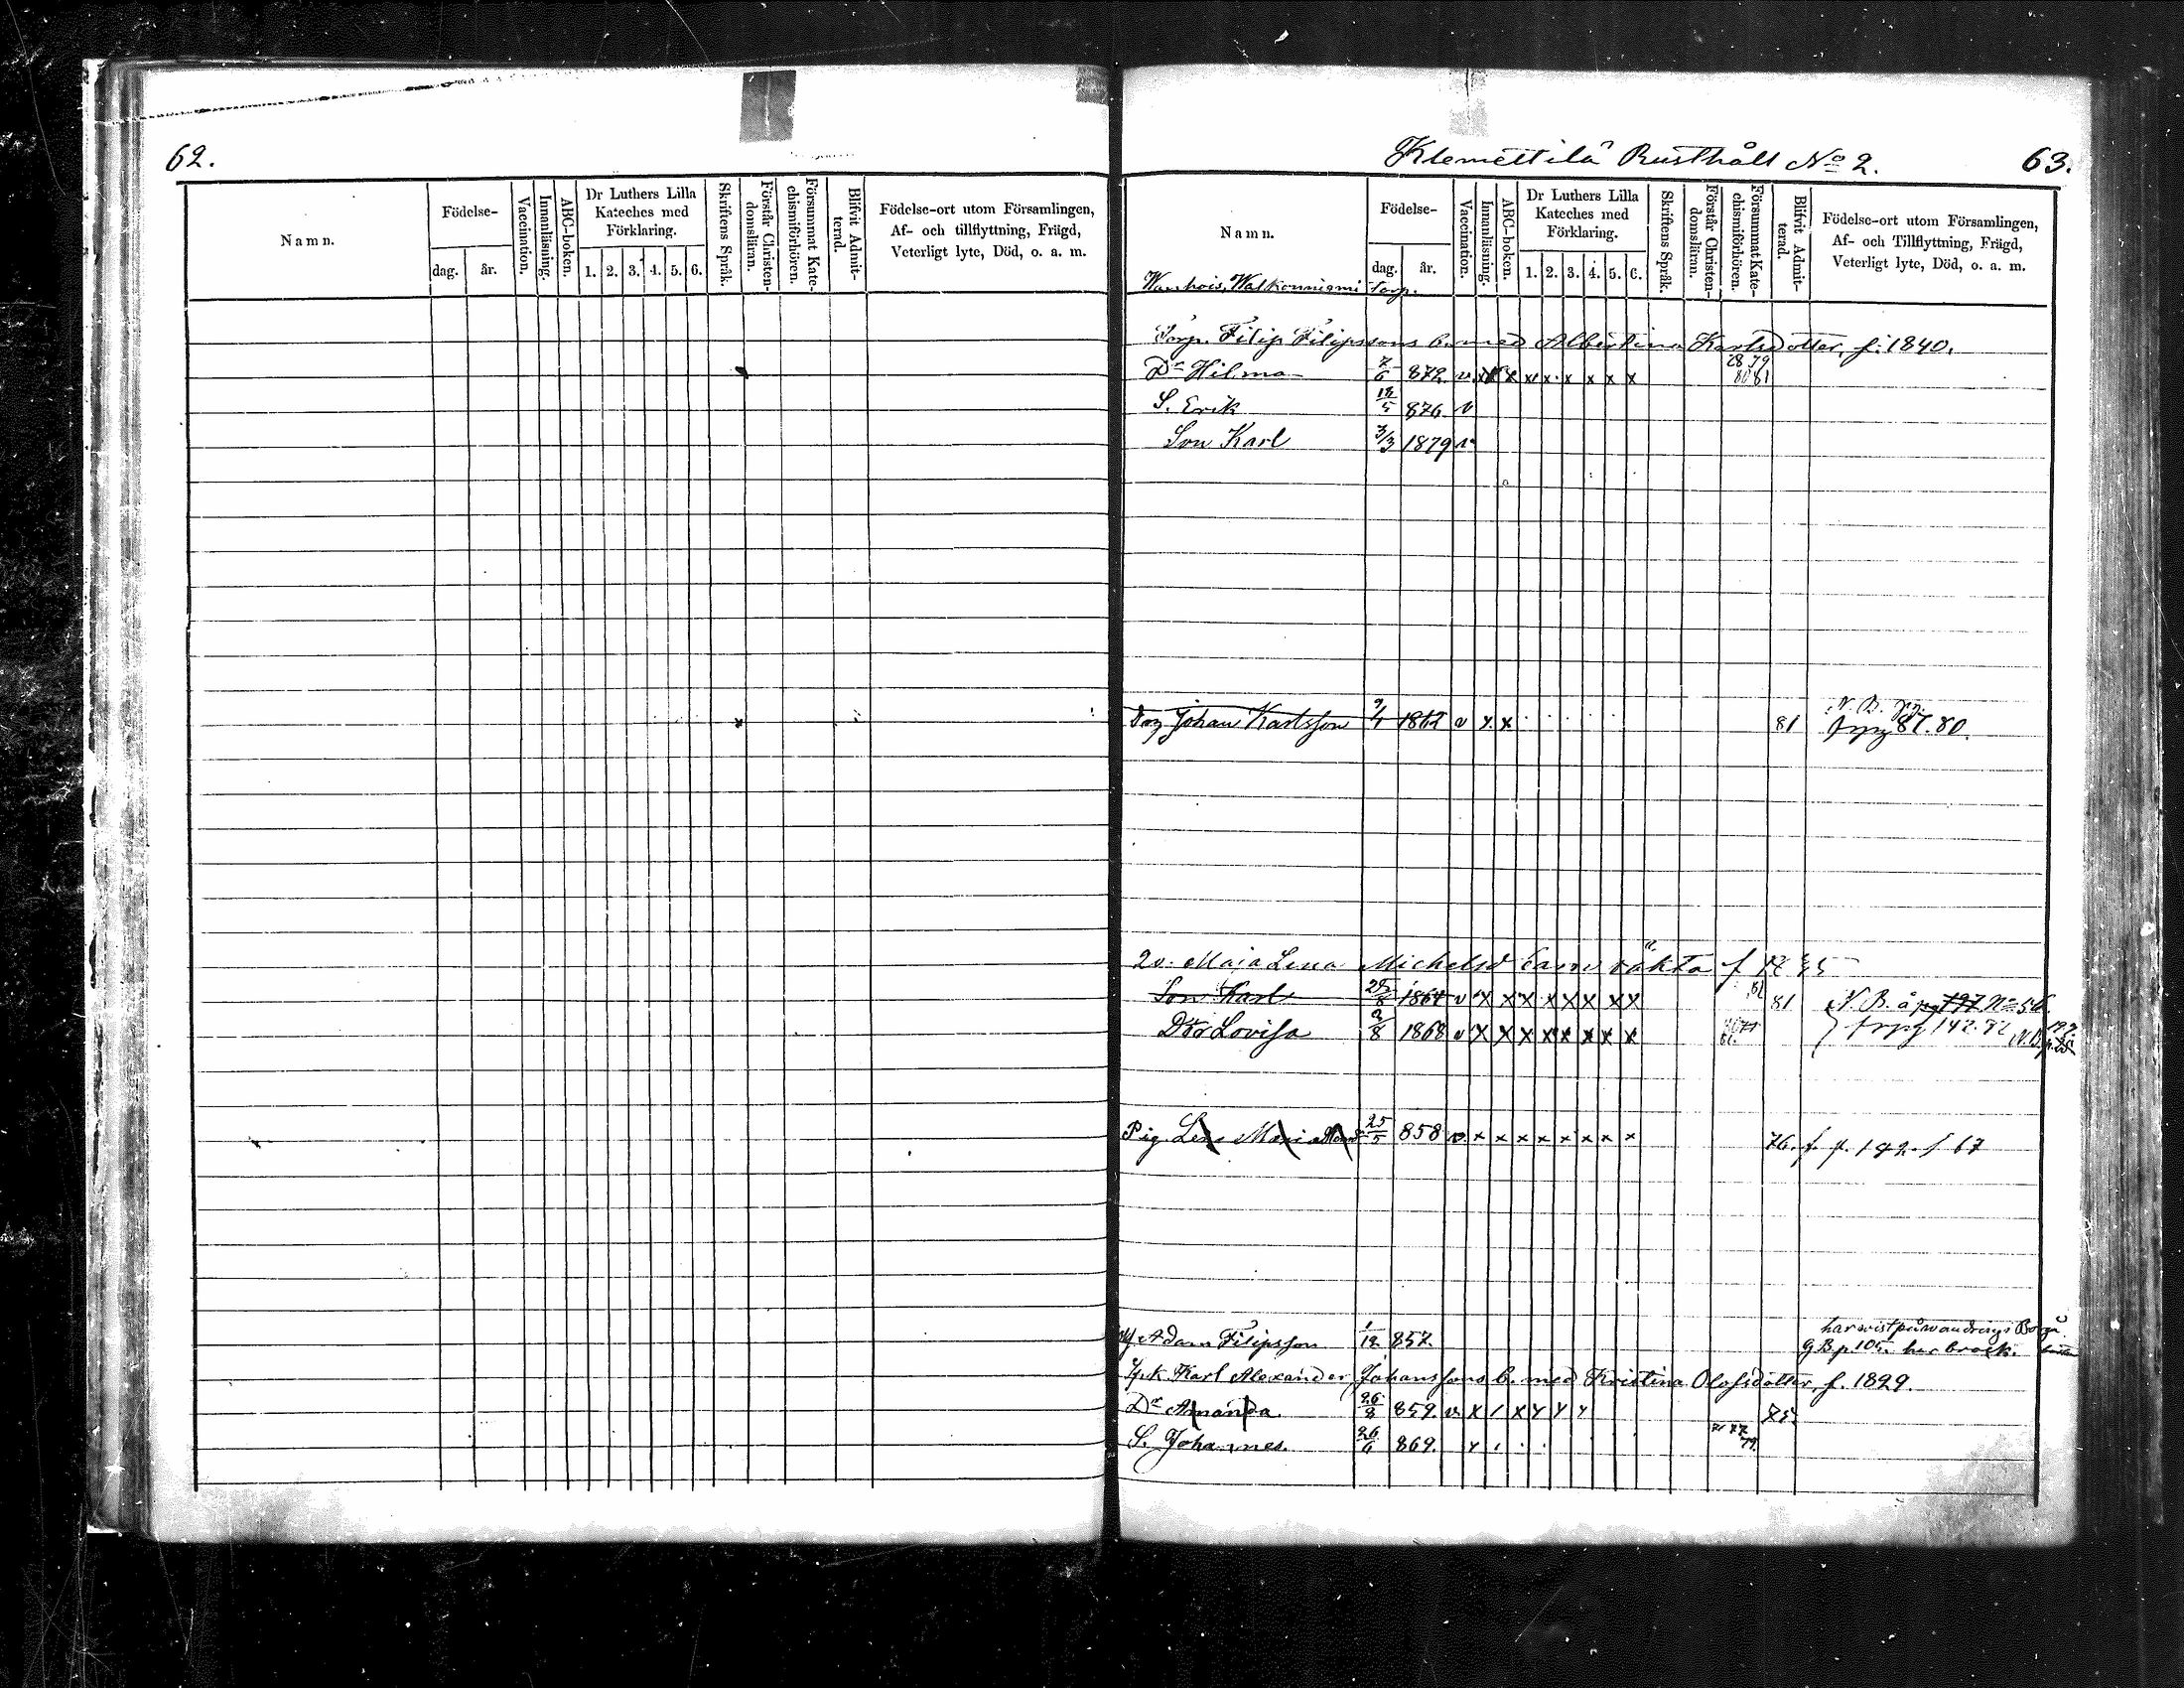 62.
Namn.
Födelse-
dag.
år.
Vaccination.
Innanläsning.
ABC-boken.
Dr Luthers Lilla
Kateches med
Förklaring.
1. 2. 3. 4. 5. 6.
Skriftens Språk.
Förstår Christen-
domsläran.
Försummat Kate-
chismiförhören.
Blifvit Admit-
terad.
Födelse-ort utom Församlingen,
Af- och tillflyttning, Frägd,
Veterligt lyte, Död, o. a. m.
Klemettilä Rusthåll No 2.
63.
Namn.
Födelse-
dag.
år.
Vaccination.
Innanläsning.
ABC-boken.
Dr Luthers Lilla
Kateches med
Förklaring.
1. 2. 3. 4. 5. 6.
Skriftens Språk.
Förstår Christen-
domsläran.
Försummat Kate-
chismiförhören.
Blifvit Admit-
terad.
Födelse-ort utom Församlingen,
Af- och Tillflyttning, Frägd,
Veterligt lyte, Död, o. a. m.
Walkonniemi torp.
Torp. Filip Filipssons b. med Albertina Karlsdotter, f. 1840.
Dr Hilma 7/6 872. v. x x x x x x x x 78 79
80 81
S. Erik 12/5 876 v
Son Karl 3/3 1879 v
Johan Karlsson v x x 81 N. B. pg.
87. 80.
Maja Lena Michelsd barn oäkta f
Son Karl 1864 v x x x x x x x x 81 N. B. å pg 197 No 56.
Dtr Lovisa 2/8 1868 v x x x x x x x x
Pig. Lena Maria 25/5 858 v x x x x x x x x 76. f. p. 192. f 67
Adam Filipsson 1/12 857.
Karl Alexander Johanssons b. med Kristina Olofsdotter, f. 1829.
Dr Amanda 26/8 859. v. x / x 75
S. Johannes. 26/6 869.